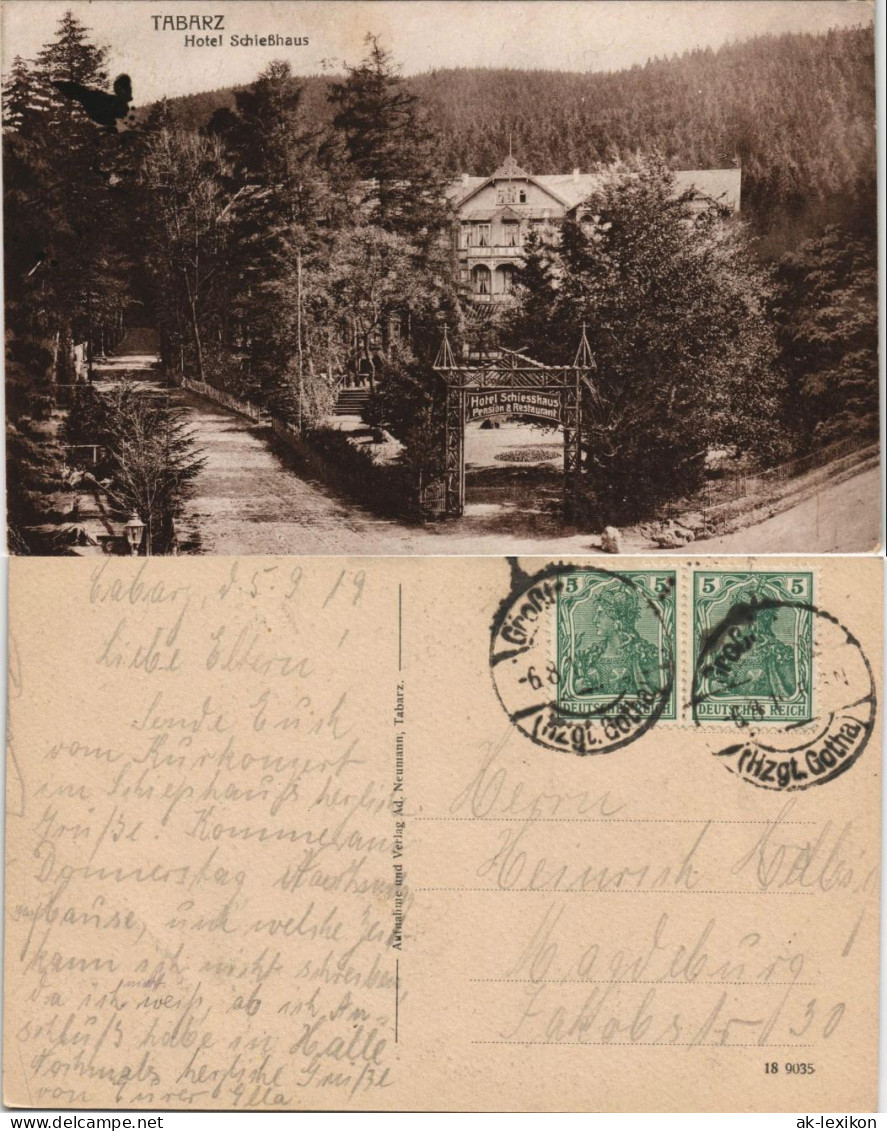 TABARZ
Hotel Schießhaus
Hotel Schiesshaus
Pension & Restaurant
Tabarz, d. 5. 9. 19
Liebe Eltern!
Sende Euch
vom Kurkonzert
im Schießhauß herzliche
Grüße. Komme am
Donnerstag
Hause, und welche Zeit
kann ich nicht schreiben
da ich nicht weiß, ob ich An-
schluß habe in Halle
Nochmals herzliche Grüße
von Eurer Ella.
Aufnahme und Verlag Ad. Neumann, Tabarz.
5 5
DEUTSCHES REICH
5 5
DEUTSCHES REICH
(Hzgt. Gotha)
(Hzgt. Gotha)
Herrn
Heinrich
Magdeburg
Jakobstr 30
18 9035
ak-lexikon